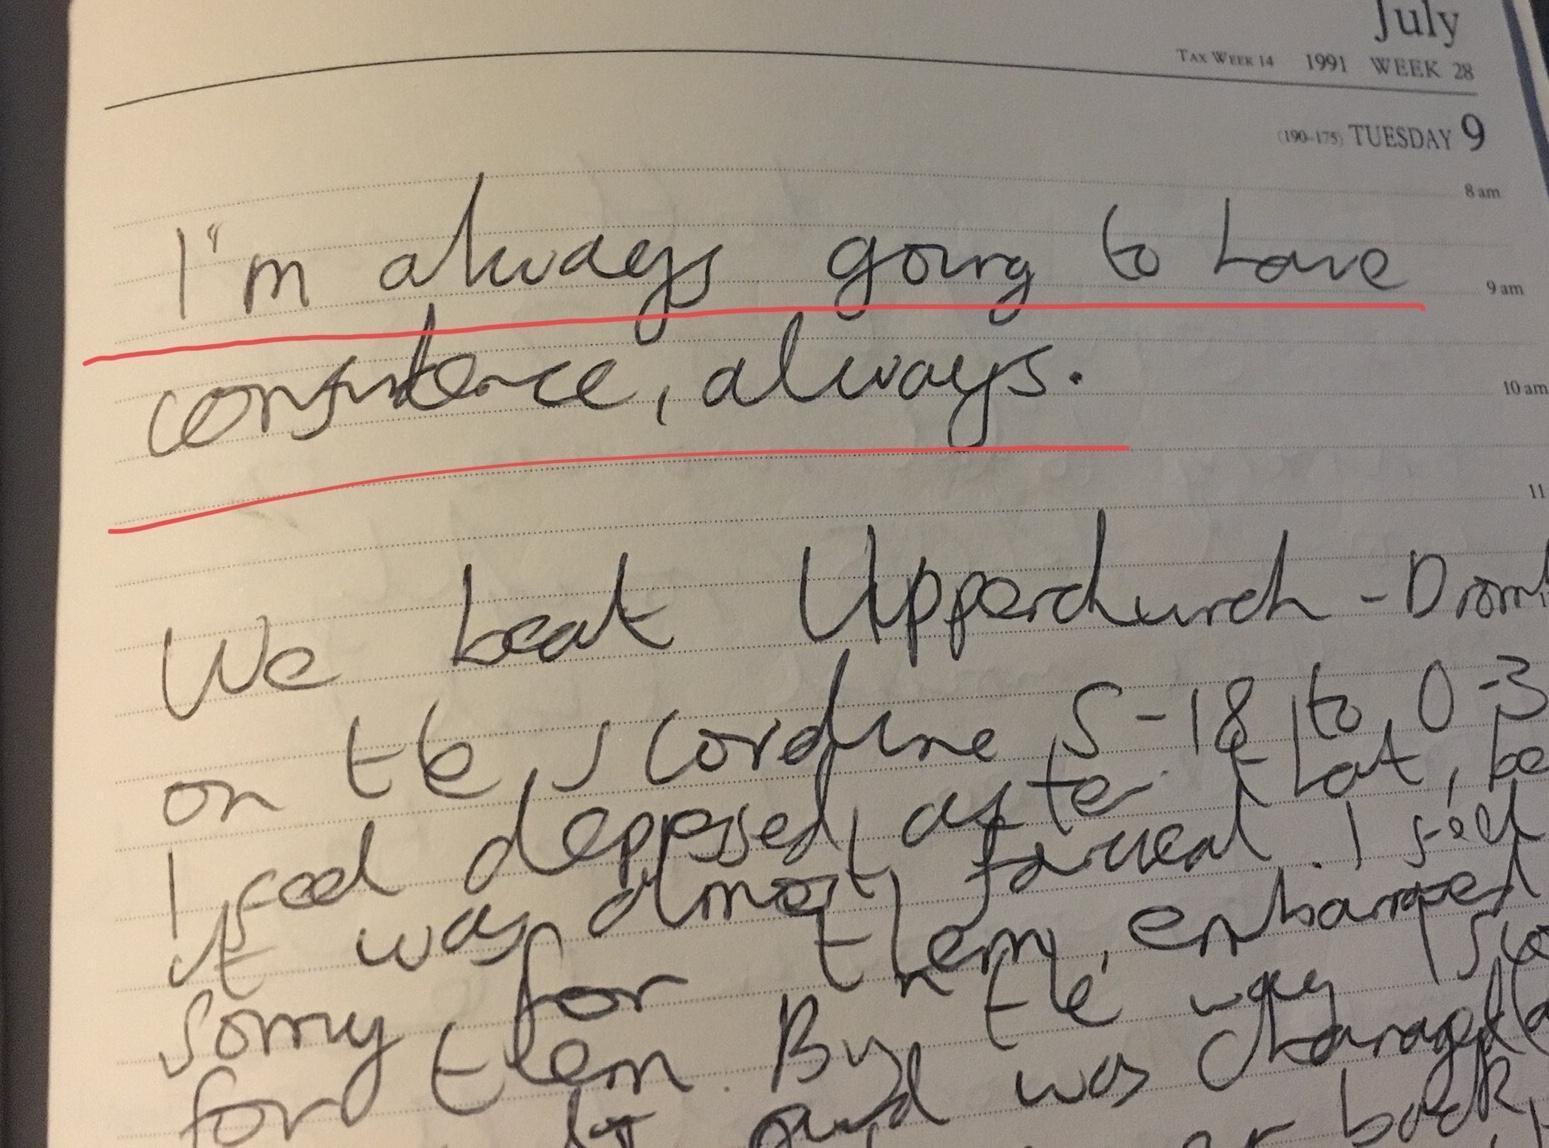 July
TAX WEEK 14 1991 WEEK 28
(190-175) TUESDAY 9
8 am
I'm always going to have
9 am
confidence, always.
10 am
11
We beat Upperchurch - Drom
on the scoreline 5-18 to 0-3
I feel depressed after that, be
it was almost farcical. I felt
sorry for them, embarrassed
for them. By the way I sco
and was changed
back